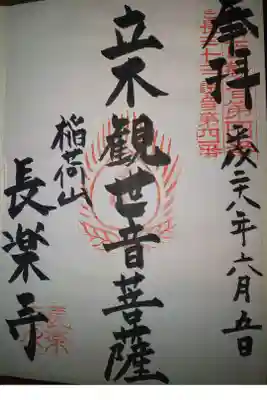 奉拝
平成二十八年六月五日
立木観世音菩薩
稲荷山
長楽寺